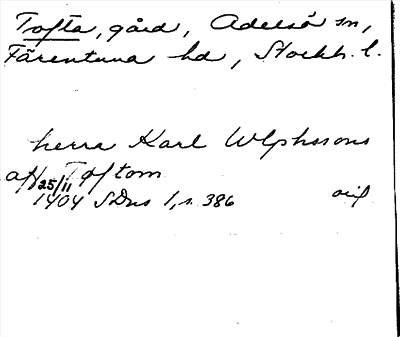 Tofta, gård, Adelsö sn,
Färentuna hd, Stockh. l.
herra Karl Wlphssons
aff Toftom
25/11
1404 SDns 1, s. 386 orig